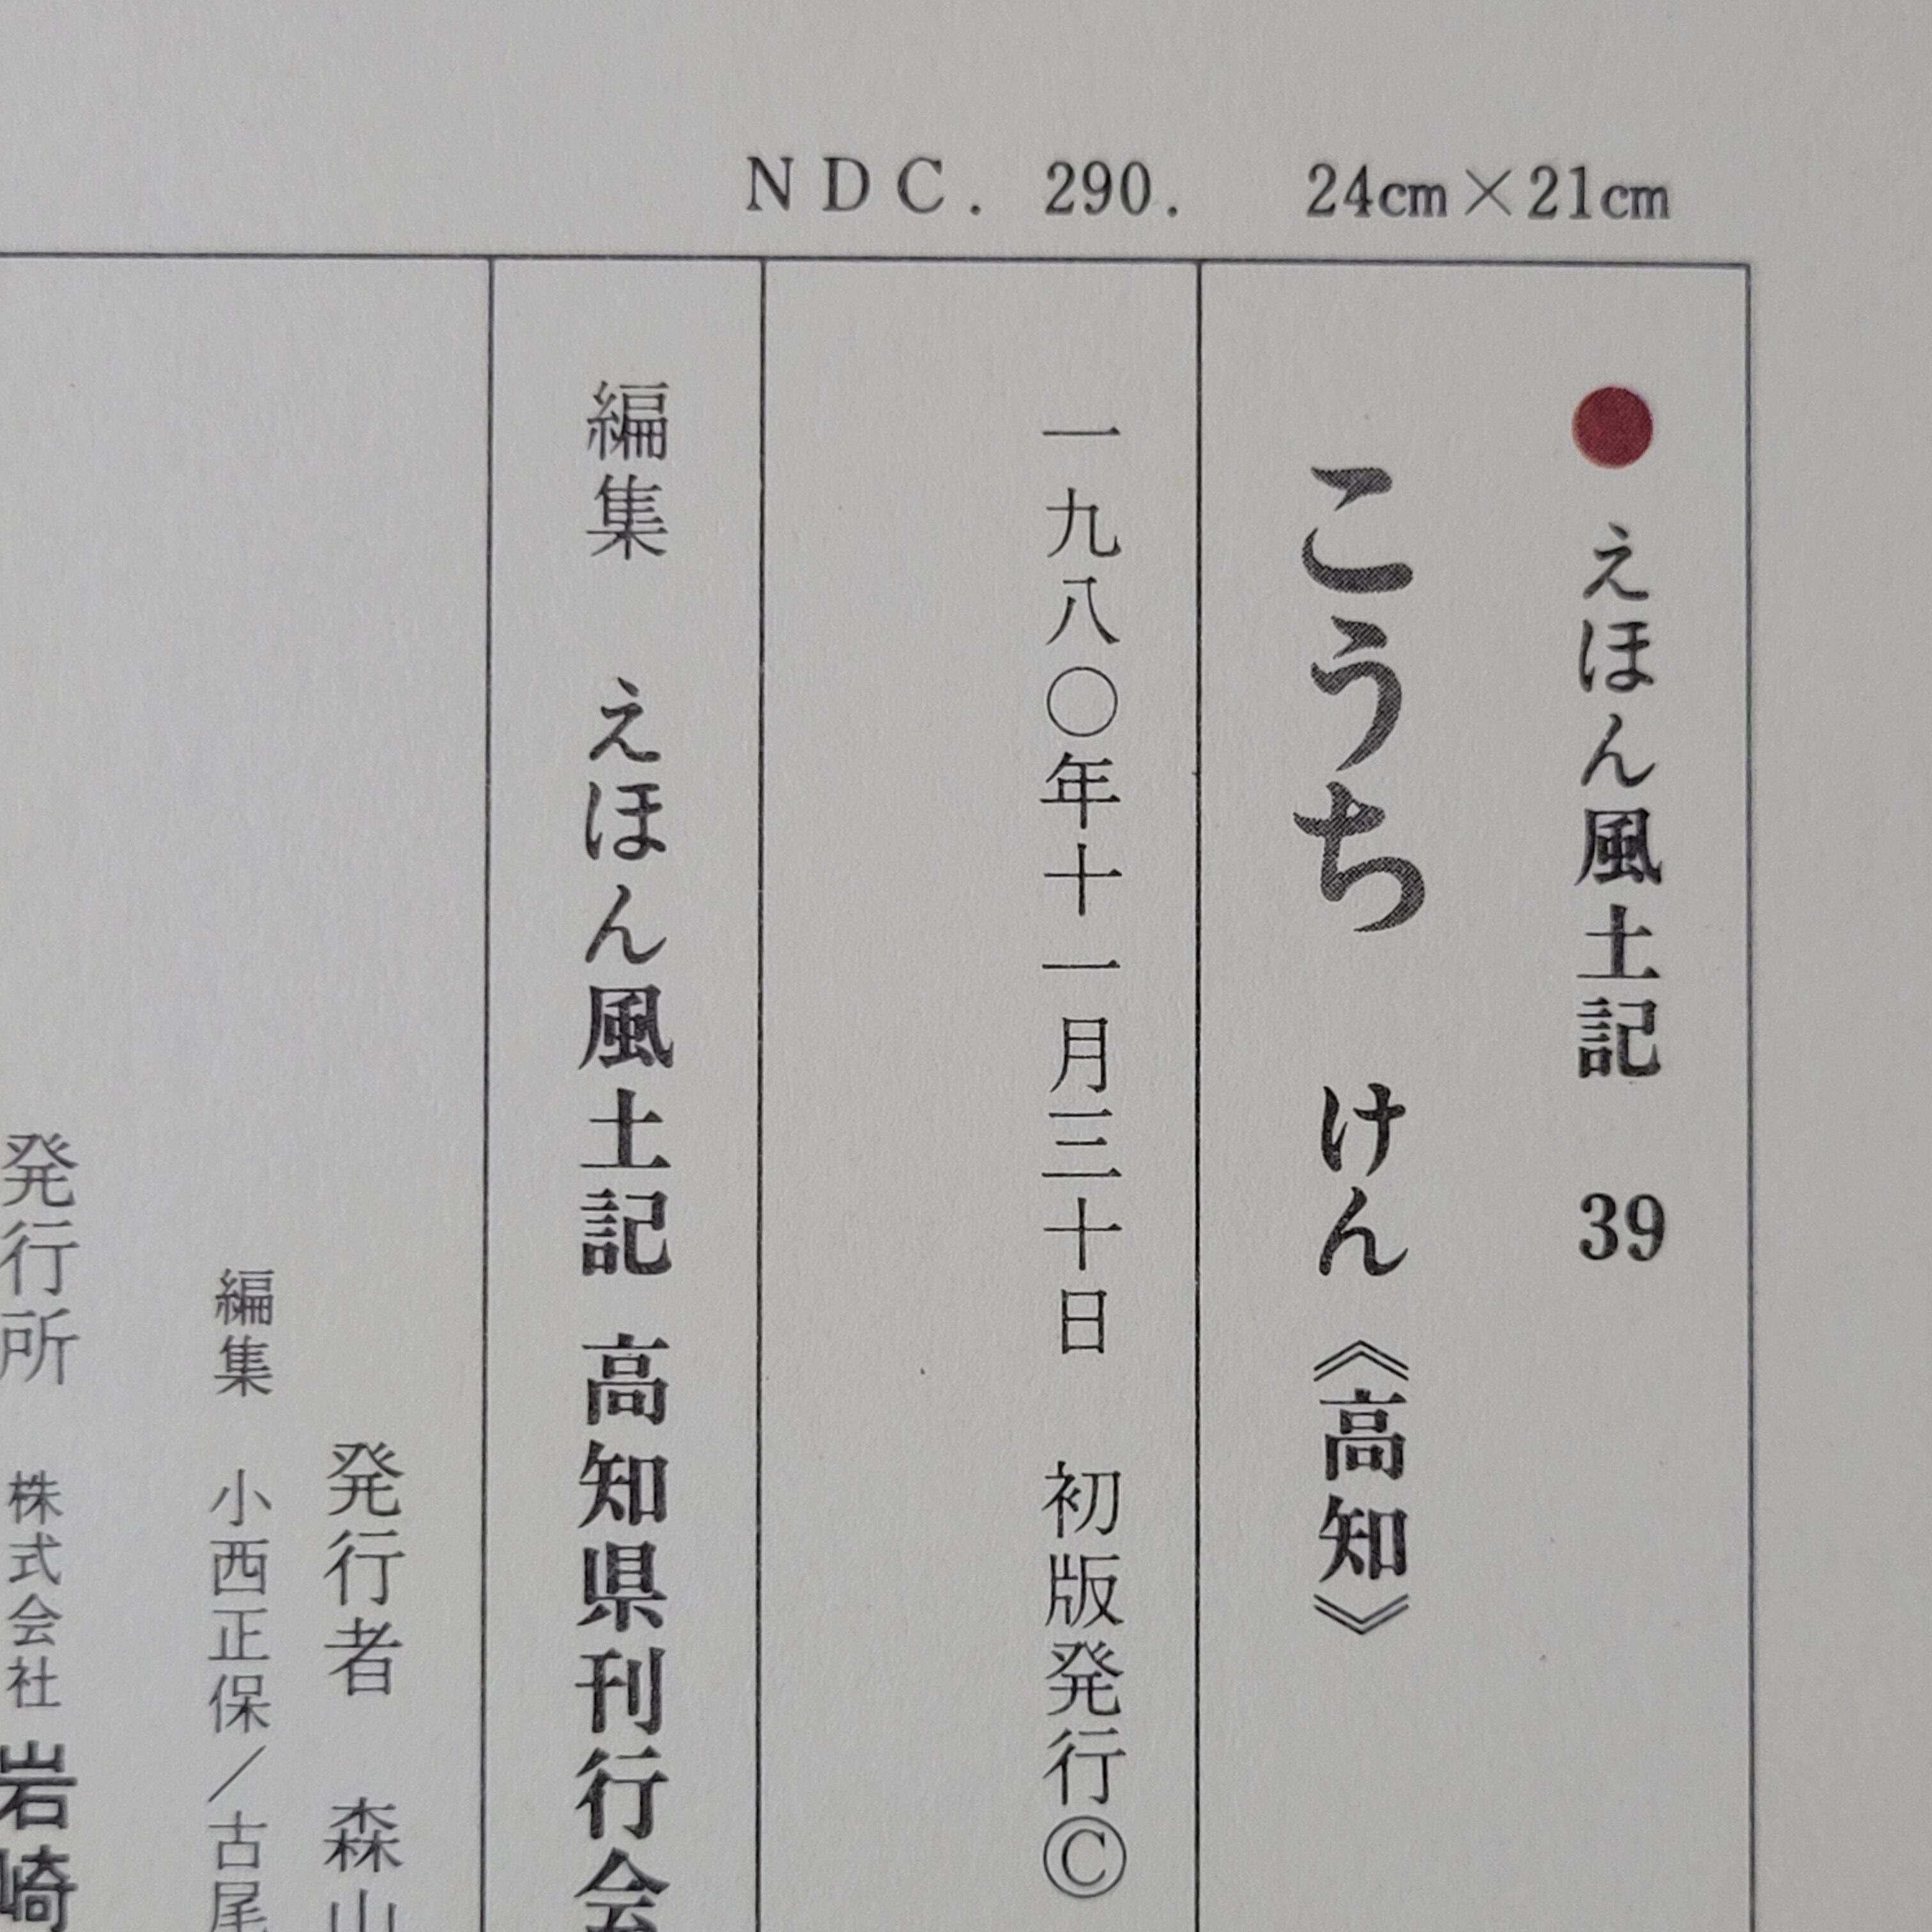 NDC. 290. 24cm×21cm
●えほん風土記 39
こうち けん《高知》
一九八〇年十一月三十日 初版発行Ⓒ
編集 えほん風土記 高知県刊行会
発行者 森山
編集 小西正保／古尾
発行所 株式会社 岩崎